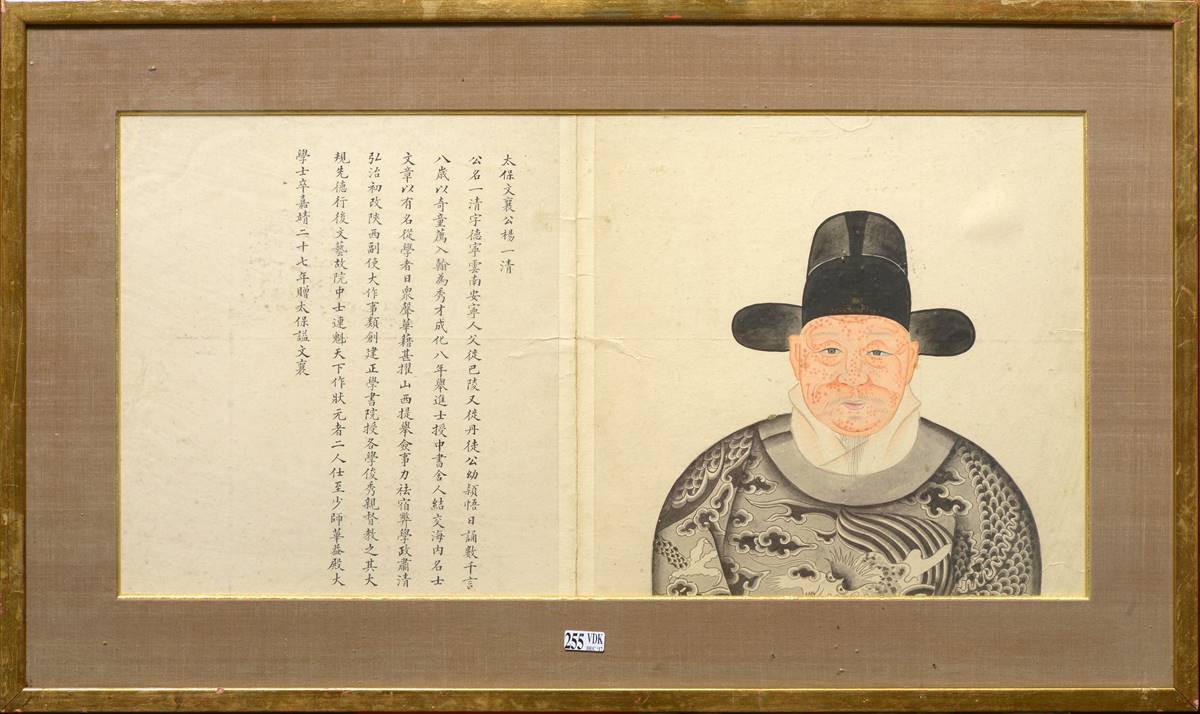 太保文襄公楊一清
公名一清字德寧雲南安寧人父徙巴陵又徙丹徒公幼穎悟日誦數千言
八歲以奇童薦入翰為秀才成化八年舉進士授中書舍人結交海內名士
文章以有名從學者日眾聲華藉甚擢山西提舉僉事力祛宿弊學政肅清
弘治初改陝西副使大作事類創建正學書院授各學俊秀親督教之其大
規先德行後文藝故院中士連魁天下作狀元者二人仕至少師華蓋殿大
學士卒嘉靖二十七年贈太保謚文襄
255 VDK
DEC 97